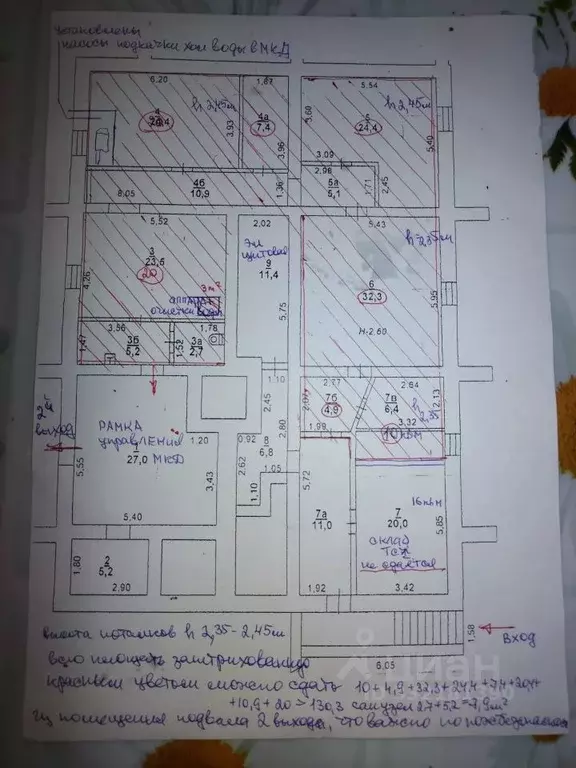 Установлены
насосы подкачки хол воды в МКД
6.20
1.87
5.54
4
h 2,45м
4а
7,4
5
24,4
h 2,45м
3.93
3.96
5.68
5.40
3.09
2.98
5а
5,1
1.71
2.45
4б
10,9
8.05
1.36
5.52
2.02
5.43
3
23,6
20
эл
щитовая
9
11,4
h-2,35м
6
32,3
4.26
5.75
5.95
3м²
аппарат
очистки воды
H-2.60
3.56
1.78
1.47
3б
5,2
1.52
3а
2,7
1.10
2.77
2.84
2.45
2.07
7б
4,9
7в
6,4
2.13
h 2,35
2ой
выход
РАМКА
управления
1
27,0
МКД
1.20
0.92
8
6,8
2.80
1.99
3.32
10 кв м
5.55
3.43
2.62
1.05
1.10
5.72
7а
11,0
7
20,0
16 кв м
5.85
склад
ТСЖ
не сдается
5.40
2
5,2
1.80
2.90
1.92
3.42
1.58
вход
6.05
высота потолков h 2,35-2,45м
всю площадь заштрихованную
красным цветом можно сдать 10+4,9+32,3+24,4+7,4+20,4+
+10,9+20=130,3 санузел 2,7+5,2=7,9м²
Из помещения подвала 2 выхода, что важно по пожбезопасности
циан